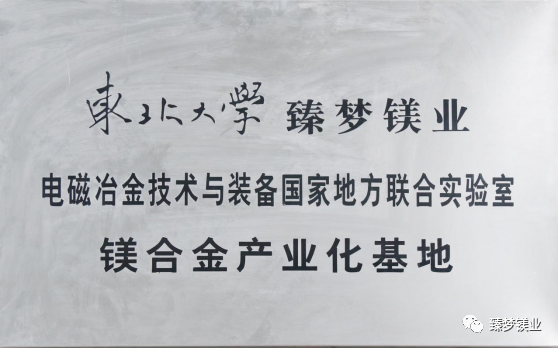 東北大學 臻梦镁业
电磁冶金技术与装备国家地方联合实验室
镁合金产业化基地
臻梦镁业